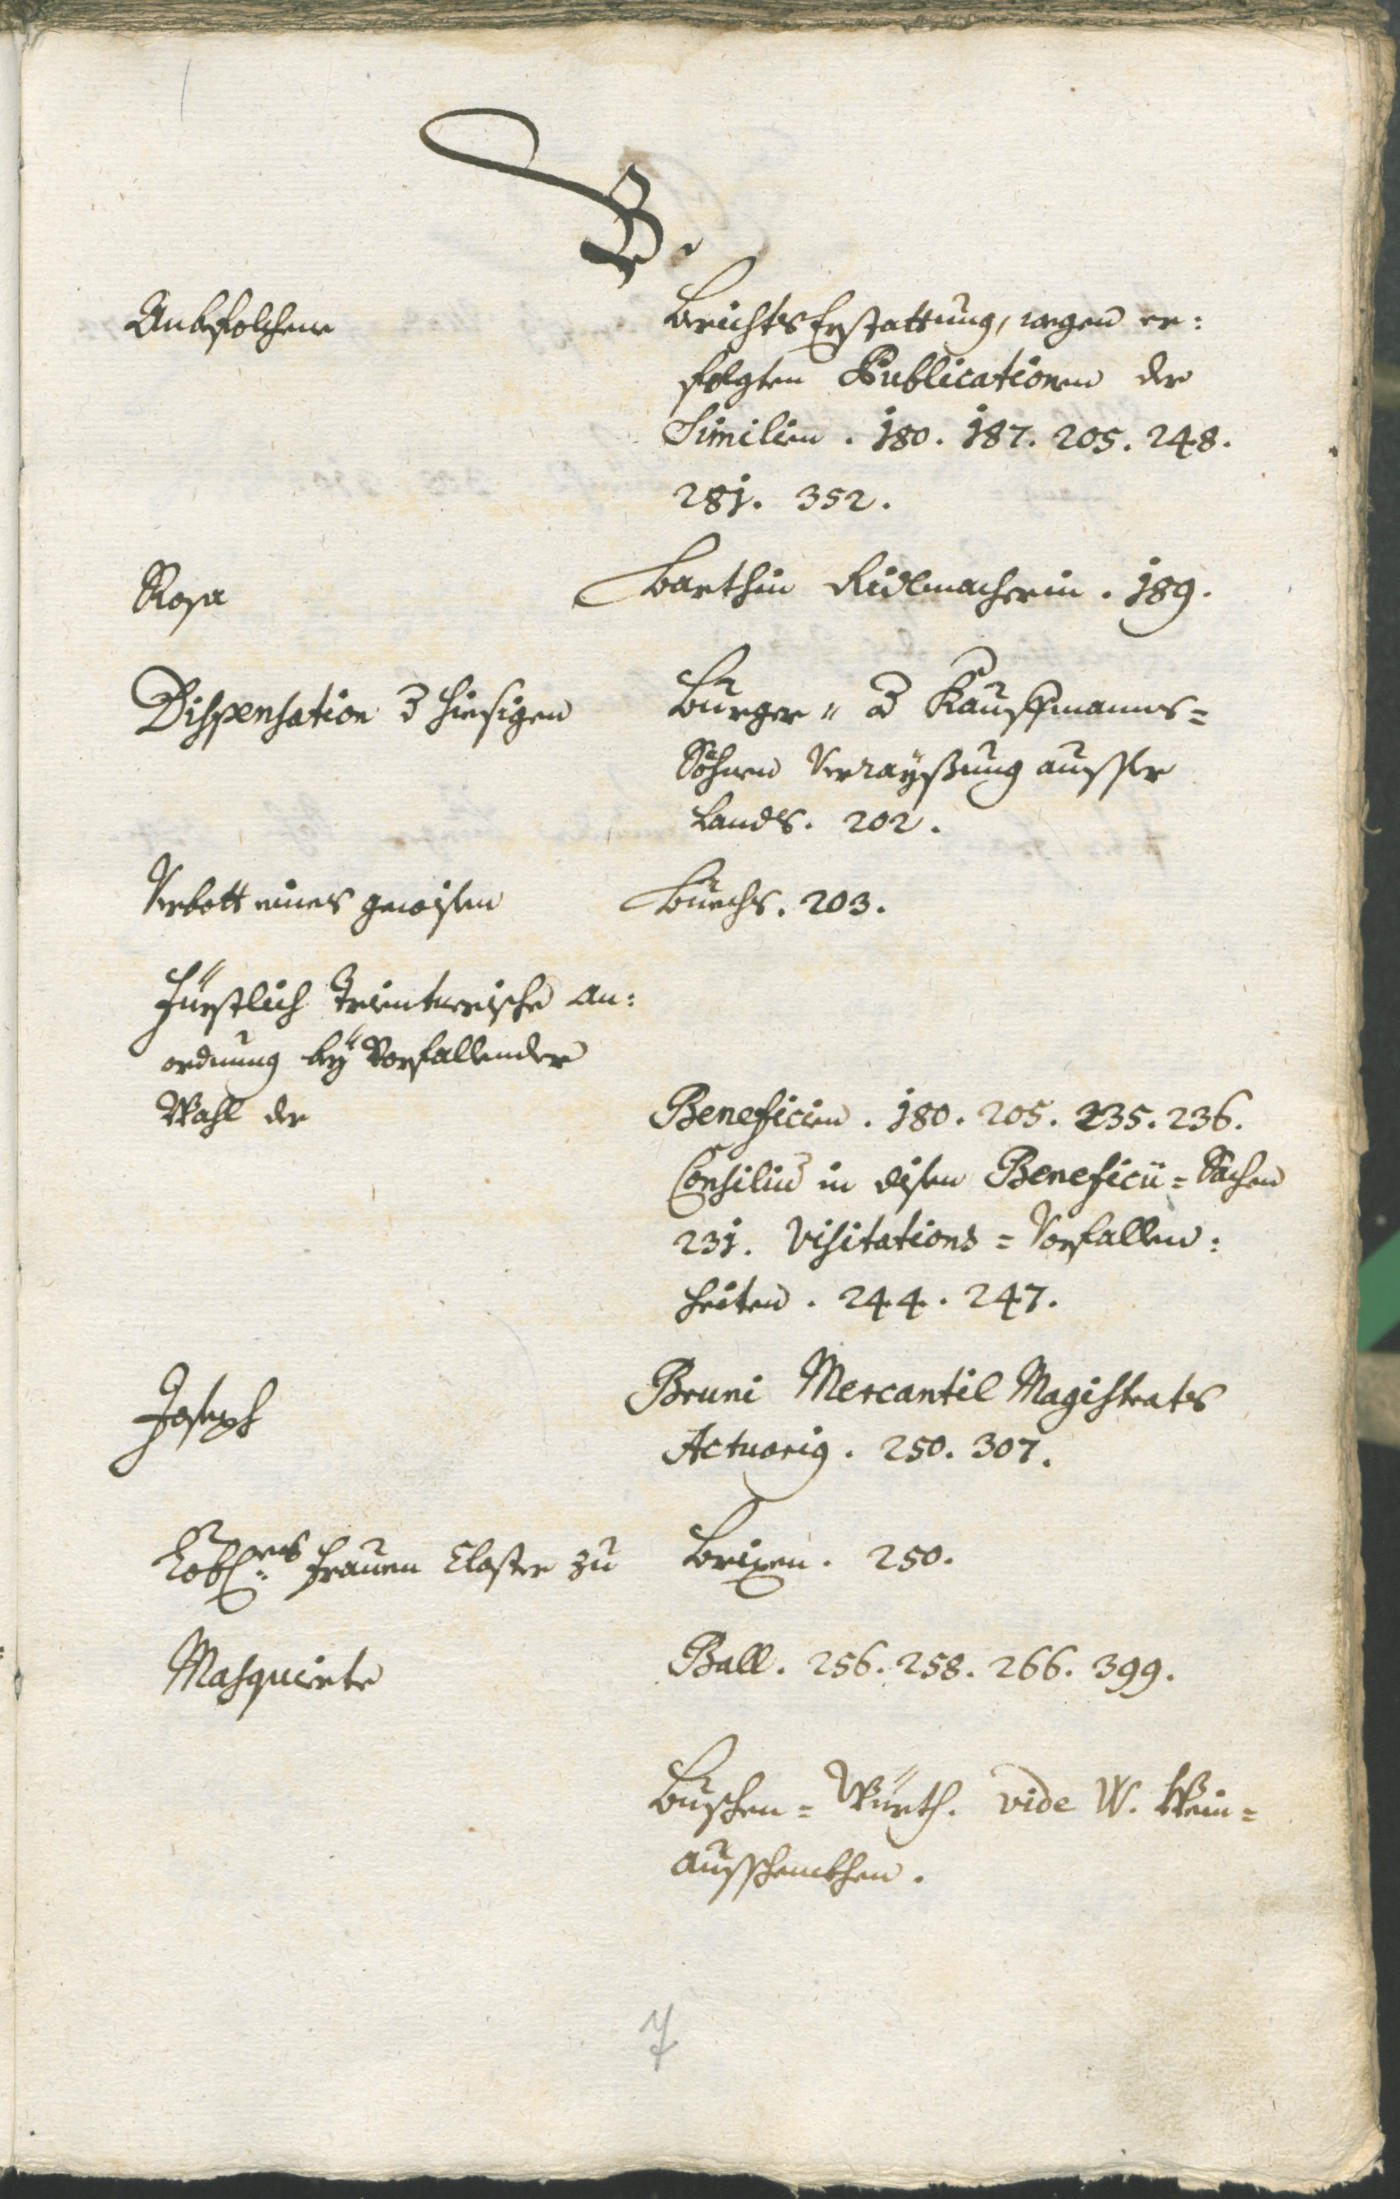 B.
Anbefolchene
Berichts Erstattung, wegen er:
folgten Publicationen der
Similien. 180. 187. 205. 248.
281. 352.
Rosa
Barthin Kidlmacherin. 189.
Dispensation d hiesigen
Burger- d Kauffmanns=
Söhnen Verrayßung ausser
Lands. 202.
Verbott eines gewisen
Buechs. 203.
Fürstlich Trienterische An:
ordnung bey Vorfallender
Wahl der
Beneficien. 180. 205. 235. 236.
Consilium in disen Beneficii=Sachen
231. Visitations=Vorfallen:
heiten. 244. 247.
Joseph
Bruni Mercantil Magistrats
Actuarius. 250. 307.
Löbl:es Frauen Closter zu
Brixen. 250.
Masquierte
Ball. 256. 258. 266. 399.
Buschen=Würth. vide W. Wein=
ausschenkhen.
7